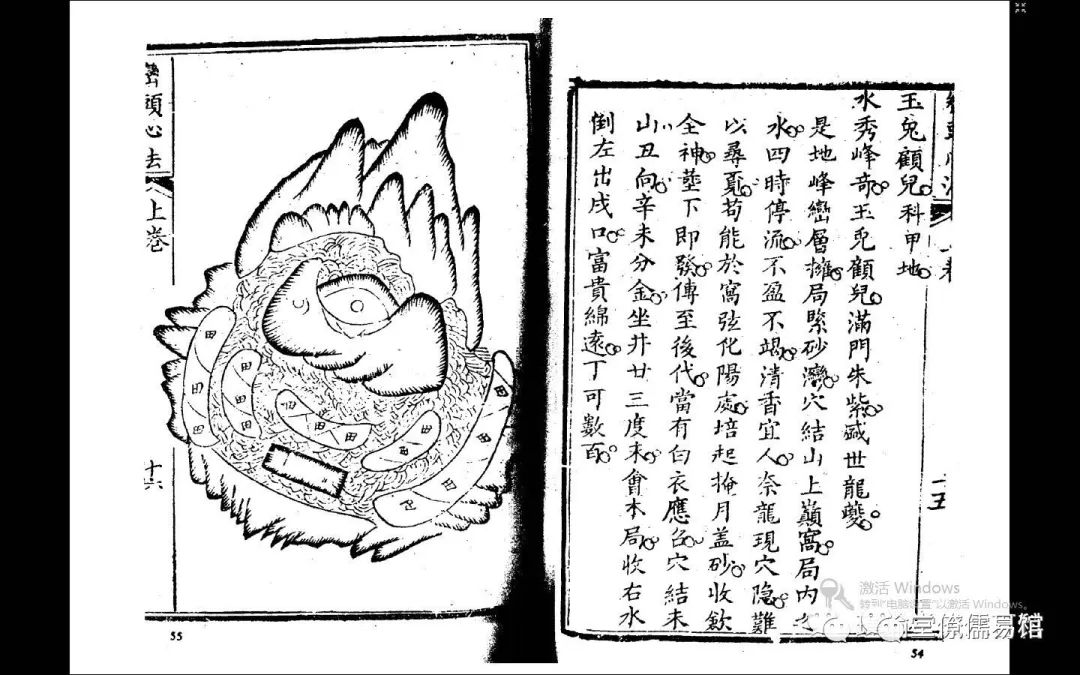 玉兔顧兒科甲地
水秀峰奇玉兎顧兒滿門朱紫盛世龍夔
是地峰巒層擁局緊砂灣穴結山上巔窩局内
水四時停流不盈不竭清香宜人奈龍現穴隱難
以尋覔苟能於窩弦化陽處培起掩月盖砂收歛
全神塟下即發傳至後代當有白衣應召穴結未
山丑向辛未分金坐井廿三度未會本局收右水
倒左出戌口富貴綿遠丁可數百
十五
54
巒頭心法
上巻
十六
田
田
田
田
田
田
田
田
田
田
田
55
激活 Windows
转到"电脑设置"以激活 Windows。
堂僚儒易馆